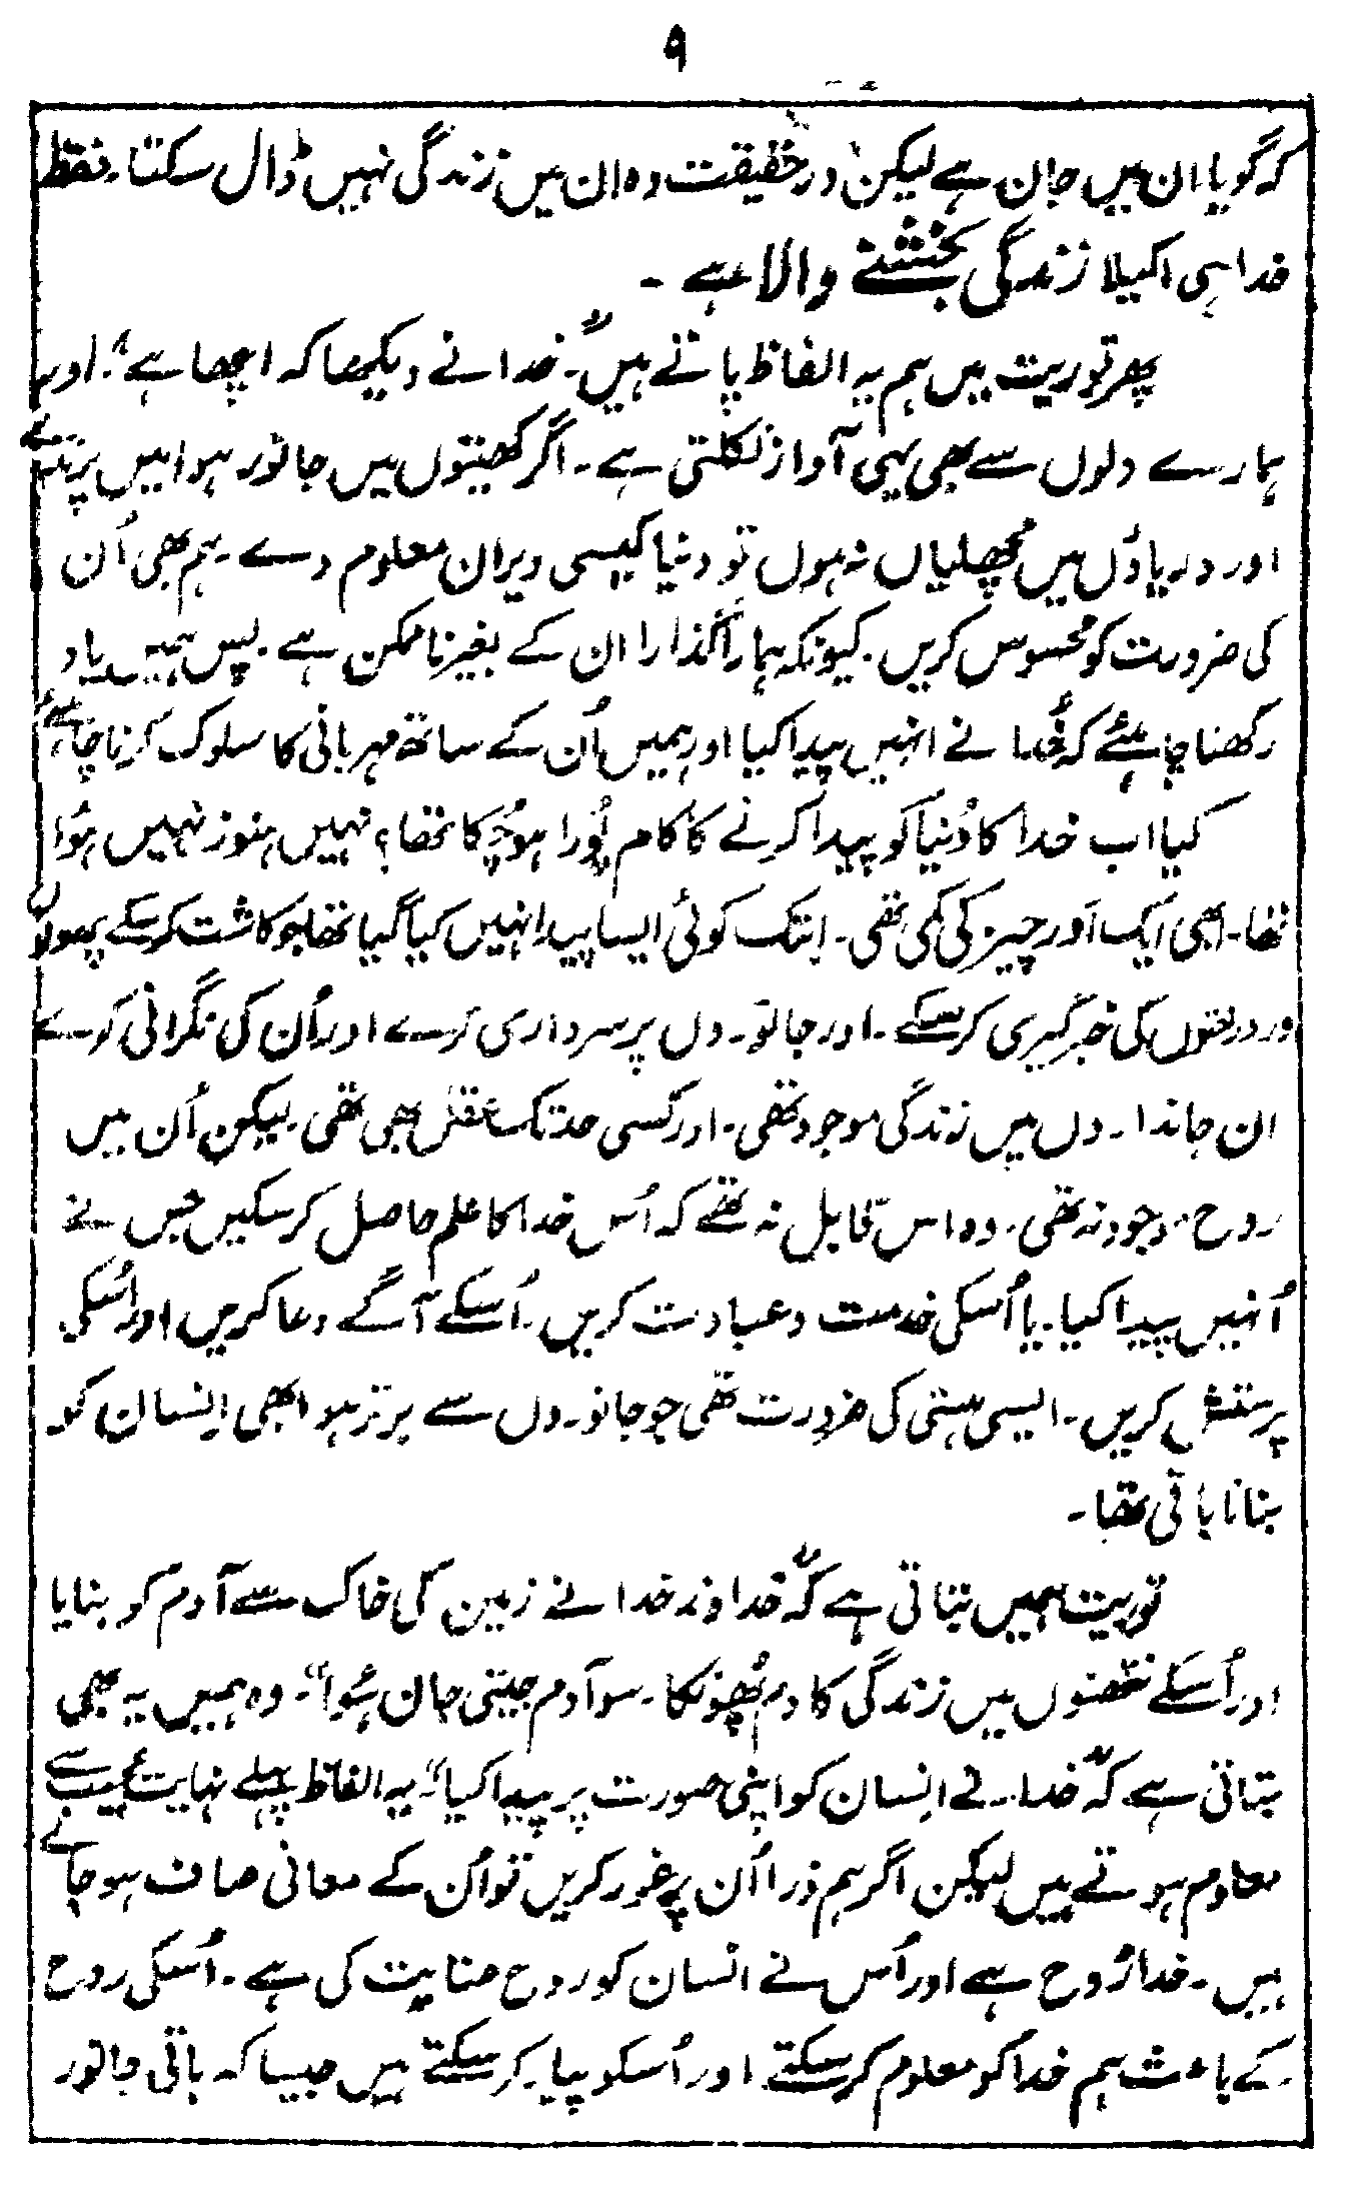 ۹
کہ گویا ان میں جان ہے لیکن درحقیقت وہ ان میں زندگی نہیں ڈال سکتا۔ فقط
خدا ہی اکیلا زندگی بخشنے والا ہے ۔
پھر توریت میں ہم یہ الفاظ پاتے ہیں۔ "خدا نے دیکھا کہ اچھا ہے"۔ اور
ہمارے دلوں سے بھی یہی آواز نکلتی ہے۔ اگر کھیتوں میں جانور ہوا میں پرندے
اور دریاؤں میں مچھلیاں نہ ہوں تو دنیا کیسی ویران معلوم دے۔ ہم بھی اُن
کی ضرورت کو محسوس کریں۔ کیونکہ ہمارا گذارا ان کے بغیر ناممکن ہے۔ پس ہمیں یاد
رکھنا چاہئے کہ خُدا نے انہیں پیدا کیا اور ہمیں اُن کے ساتھ مہربانی کا سلوک کرنا چاہئے
کیا اب خدا کا دُنیا کو پیدا کرنے کا کام پُورا ہو چُکا تھا؟ نہیں ہنوز نہیں ہُوا
تھا۔ ابھی ایک اَور چیز کی کمی تھی۔ ابتک کوئی ایسا پیدا نہیں کیا گیا تھا جو کاشت کرسکے پھولوں
اور درختوں کی خبرگیری کرسکے۔ اور جانوروں پر سرداری کرے اور اُن کی نگرانی کرے
ان جانداروں میں زندگی موجود تھی۔ اور کسی حد تک عقل بھی تھی۔ لیکن اُن میں
روح موجود نہ تھی۔ وہ اس قابل نہ تھے کہ اُس خدا کا علم حاصل کرسکیں جس نے
اُنہیں پیدا کیا۔ یا اُسکی خدمت و عبادت کریں۔ اُسکے آگے دعا کریں اور اُسکی
پرستش کریں۔ ایسی ہستی کی ضرورت تھی جو جانوروں سے برتر ہو ابھی اِنسان کو
بنانا باقی تھا۔
توریت ہمیں بتاتی ہے کہ "خداوند خدا نے زمین کی خاک سے آدم کو بنایا
اور اُسکے نتھنوں میں زندگی کا دم پُھونکا۔ سو آدم جیتی جان ہُوا"۔ وہ ہمیں یہ بھی
بتاتی ہے کہ "خدا نے انسان کو اپنی صورت پر پیدا کیا"۔ یہ الفاظ پہلے نہایت عجیب سے
معلوم ہوتے ہیں لیکن اگر ہم ذرا اُن پر غور کریں تو اُن کے معانی صاف ہو جاتے
ہیں۔ خدا رُوح ہے اور اُس نے انسان کو روح عنایت کی ہے۔ اُسکی روح
کے باعث ہم خدا کو معلوم کرسکتے اور اُسکو پیار کرسکتے ہیں جیسا کہ باقی جانور